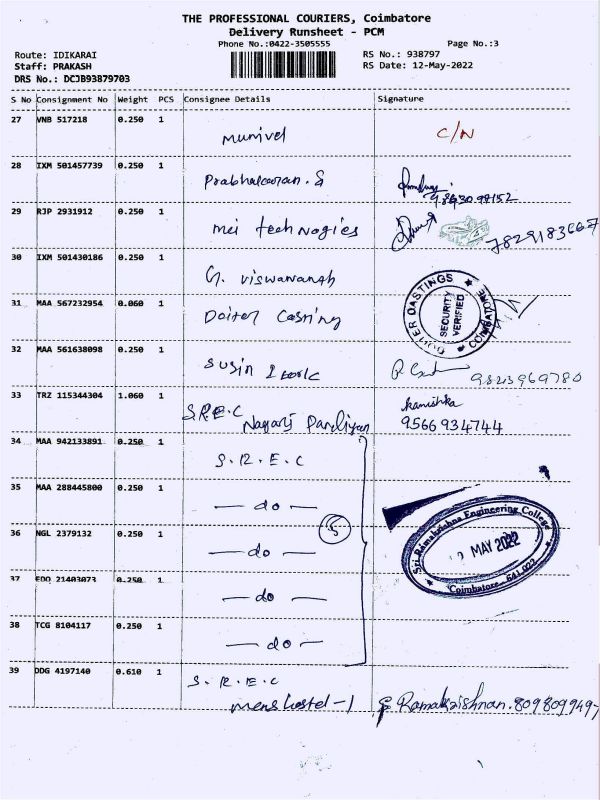 THE PROFESSIONAL COURIERS, Coimbatore
Delivery Runsheet - PCM
Phone No.:0422-3505555 Page No.:3
Route: IDIKARAI RS No.: 938797
Staff: PRAKASH RS Date: 12-May-2022
DRS No.: DCJB93879703
S No Consignment No Weight PCS Consignee Details Signature
27 VNB 517218 0.250 1
Munivel C/N
28 IXM 501457739 0.250 1
Prabhakaran.S
9843099152
29 RJP 2931912 0.250 1
mei technogies 7829183667
30 IXM 501430186 0.250 1
G. viswawanath
31 MAA 567232954 0.060 1
Doiter Casting
DOITER DASTINGS
SECURITY
VERIFIED
COIMBATORE
32 MAA 561638098 0.250 1
Susin 9823969780
33 TRZ 115344304 1.060 1
S.R.E.C Nagarj Pandiyan
kanishka
9566934744
34 MAA 942133891 0.250 1
S.R.E.C
35 MAA 288445800 0.250 1
— do —
36 NGL 2379132 0.250 1
— do —
5
Sri Ramakrishna Engineering College
MAY 2022
Coimbatore - 641 022
37 EDO 21403073 0.250 1
— do —
38 TCG 8104117 0.250 1
— do —
39 DDG 4197140 0.610 1
S.R.E.C
mens hostel-1 Ramakrishnan.809809949